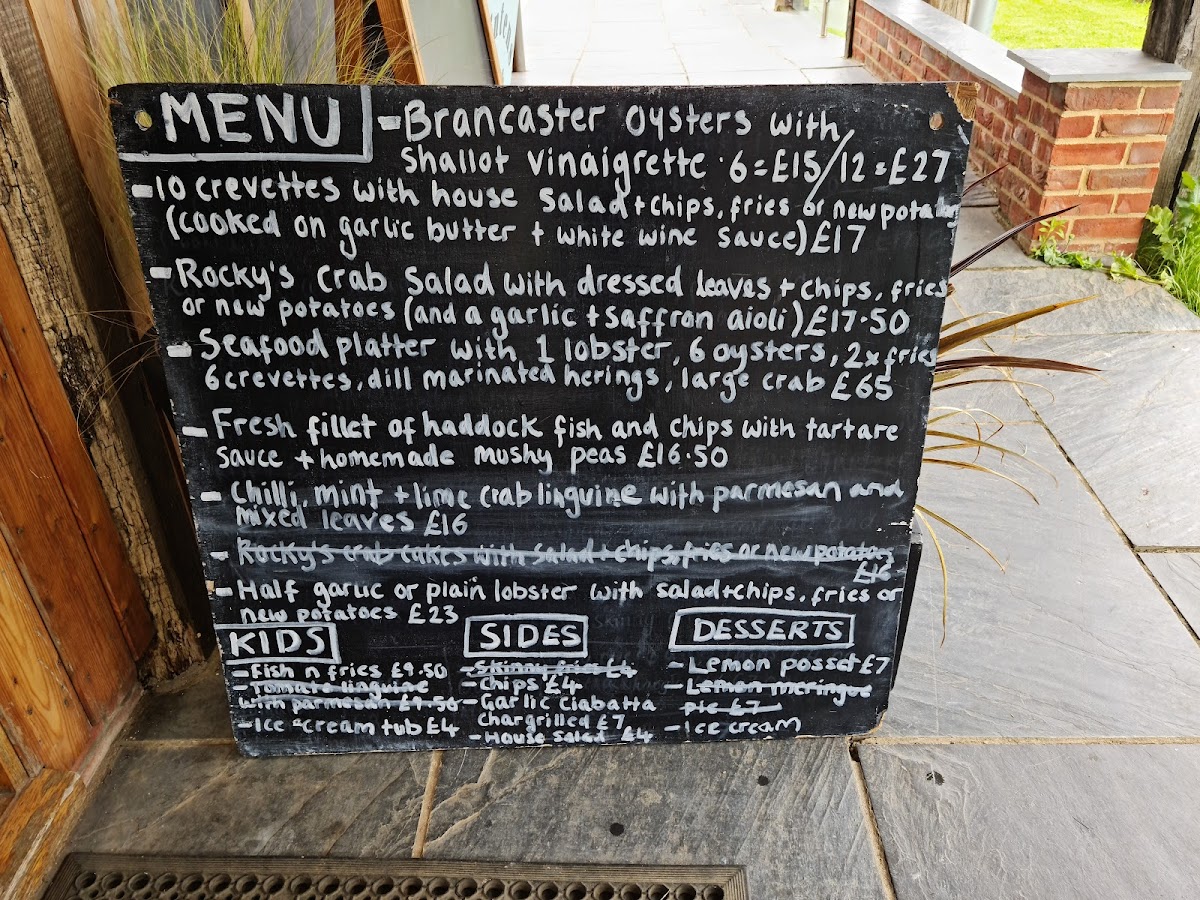 MENU
-Brancaster oysters with
shallot vinaigrette · 6=£15/12=£27
-10 crevettes with house salad+chips, fries or new potatoes
(cooked on garlic butter + white wine sauce) £17
-Rocky's crab salad with dressed leaves + chips, fries
or new potatoes (and a garlic + saffron aioli) £17·50
-Seafood platter with 1 lobster, 6 oysters, 2x fries
6 crevettes, dill marinated herings, large crab £65
-Fresh fillet of haddock fish and chips with tartare
sauce + homemade mushy peas £16·50
-Chilli, mint + lime crab linguine with parmesan and
mixed leaves £16
-Rocky's crab cakes with salad + chips, fries or new potatoes
£16
-Half garlic or plain lobster with salad+chips, fries or
new potatoes £23
KIDS
-Fish n fries £9.50
-Tomato linguine
with parmesan £9.50
-Ice-cream tub £4
SIDES
-Skinny fries £4
-Chips £4
-Garlic ciabatta
chargrilled £7
-House salad £4
DESSERTS
-Lemon posset £7
-Lemon meringue
pie £7
-Ice cream